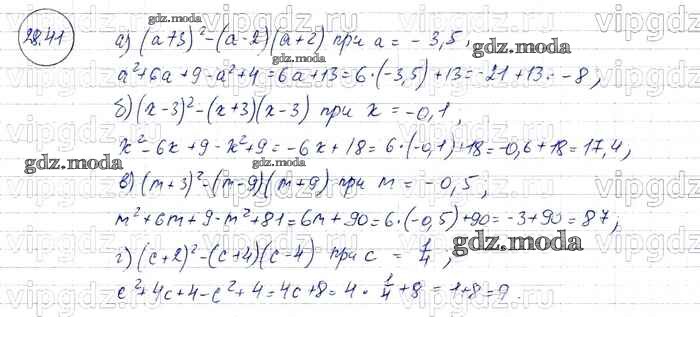 28.41
а) (a+3)² - (a-2)(a+2) при a = -3,5;
a² + 6a + 9 - a² + 4 = 6a + 13 = 6·(-3,5) + 13 = -21 + 13 = -8;
б) (x-3)² - (x+3)(x-3) при x = -0,1;
x² - 6x + 9 - x² + 9 = -6x + 18 = 6·(-0,1) + 18 = -0,6 + 18 = 17,4;
в) (m+3)² - (m-9)(m+9) при m = -0,5;
m² + 6m + 9 - m² + 81 = 6m + 90 = 6·(-0,5) + 90 = -3 + 90 = 87;
г) (c+2)² - (c+4)(c-4) при c = 1/4;
c² + 4c + 4 - c² + 4 = 4c + 8 = 4·1/4 + 8 = 1 + 8 = 9.
gdz.moda
gdz.moda
gdz.moda
gdz.moda
gdz.moda
gdz.moda
gdz.moda
vipgdz.ru